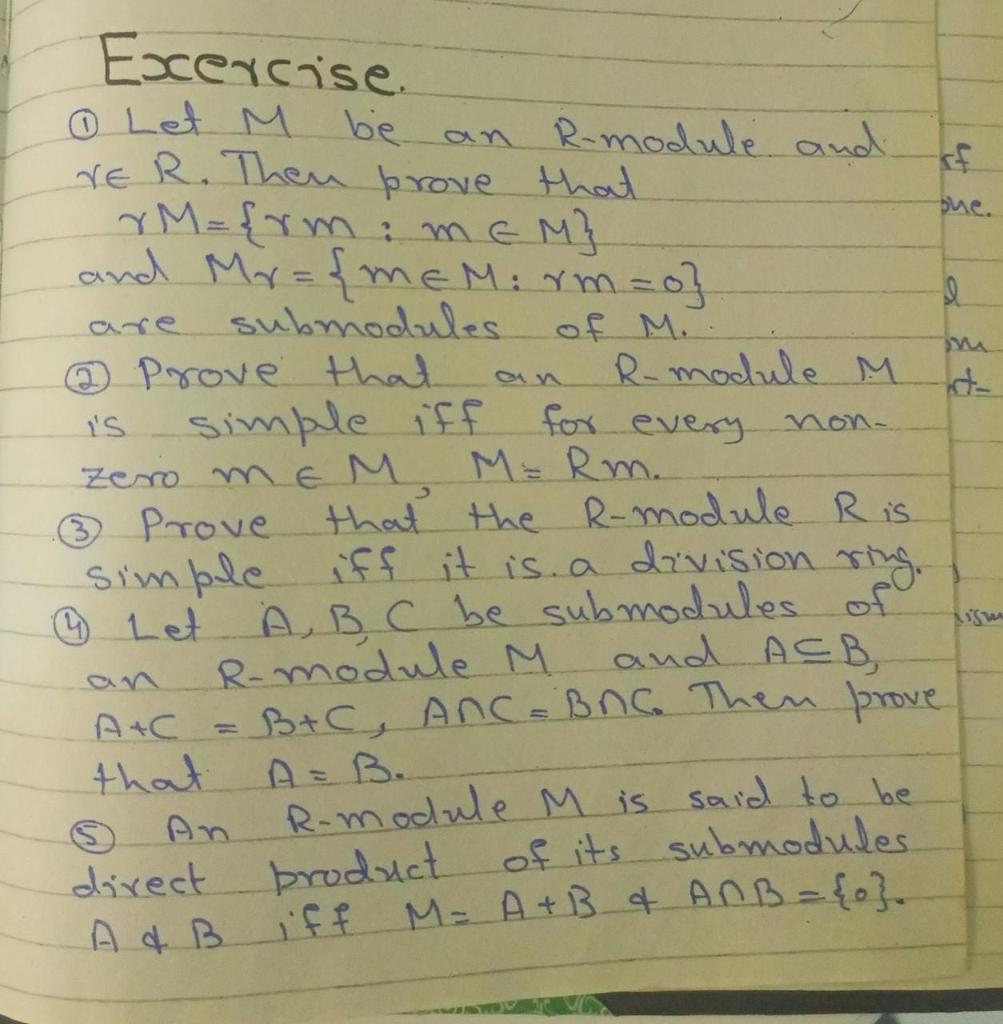 Excercise.
① Let M be an R-module and
r∈ R. Then prove that
rM={rm : m ∈ M}
and Mr={m∈M: rm=0}
are submodules of M.
② Prove that an R-module M
is simple iff for every non-
zero m ∈ M, M= Rm.
③ Prove that the R-module R is
simple iff it is a division ring.
④ Let A, B, C be submodules of
an R-module M and A⊆B,
A+C = B+C, A∩C=B∩C. Then prove
that A= B.
⑤ An R-module M is said to be
direct product of its submodules
A & B iff M= A+B & A∩B={0}.